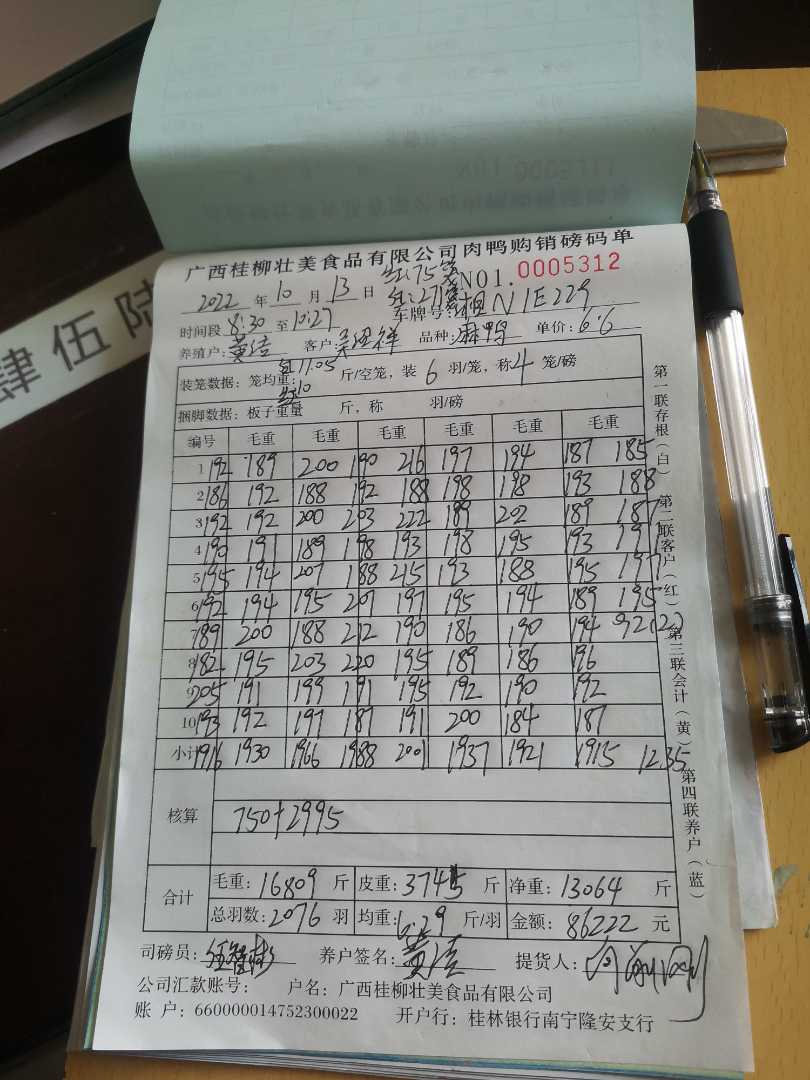 肆伍陆
广西桂柳壮美食品有限公司肉鸭购销磅码单
75笼
NO1. 0005312
2022 年 10 月 13 日 271笼
车牌号: 桂N1E229
时间段 8:30 至 10:27
养殖户: 黄洁 客户: 品种: 麻鸭 单价: 6.6
装笼数据: 笼均重: 11.05 斤/空笼, 装 6 羽/笼, 称 4 笼/磅
10
捆脚数据: 板子重量 斤, 称 羽/磅
编号 毛重 毛重 毛重 毛重 毛重 毛重
1 192 189 200 190 216 197 194 187 185
2 186 192 188 192 188 198 198 193 188
3 192 192 200 203 222 189 202 189 187
4 190 191 189 198 193 198 195 193 191
5 195 194 207 188 215 193 188 195 197
6 192 194 195 207 197 195 194 189 195
7 189 200 188 212 190 186 190 194 92(2)
8 182 195 203 220 195 189 186 196
9 205 191 199 191 195 192 190 192
10 193 192 197 187 191 200 184 187
小计 1916 1930 1966 1988 2001 1937 1921 1915 1235
核算 750+2995
合计 毛重: 16809 斤 皮重: 3745 斤 净重: 13064 斤
总羽数: 2076 羽 均重: 6.29 斤/羽 金额: 86222 元
司磅员: 养户签名: 黄洁 提货人:
公司汇款账号: 户名: 广西桂柳壮美食品有限公司
账 户: 660000014752300022 开户行: 桂林银行南宁隆安支行
第一联存根(白) 第二联客户(红) 第三联会计(黄) 第四联养户(蓝)